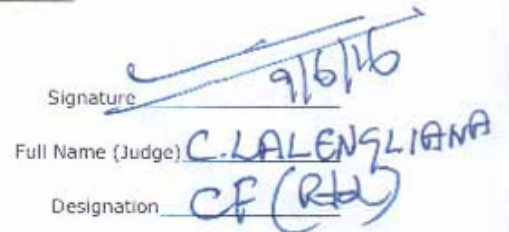 9/6/16
Signature
Full Name (Judge) C. LALENGLIANA
Designation CF (Rtd)